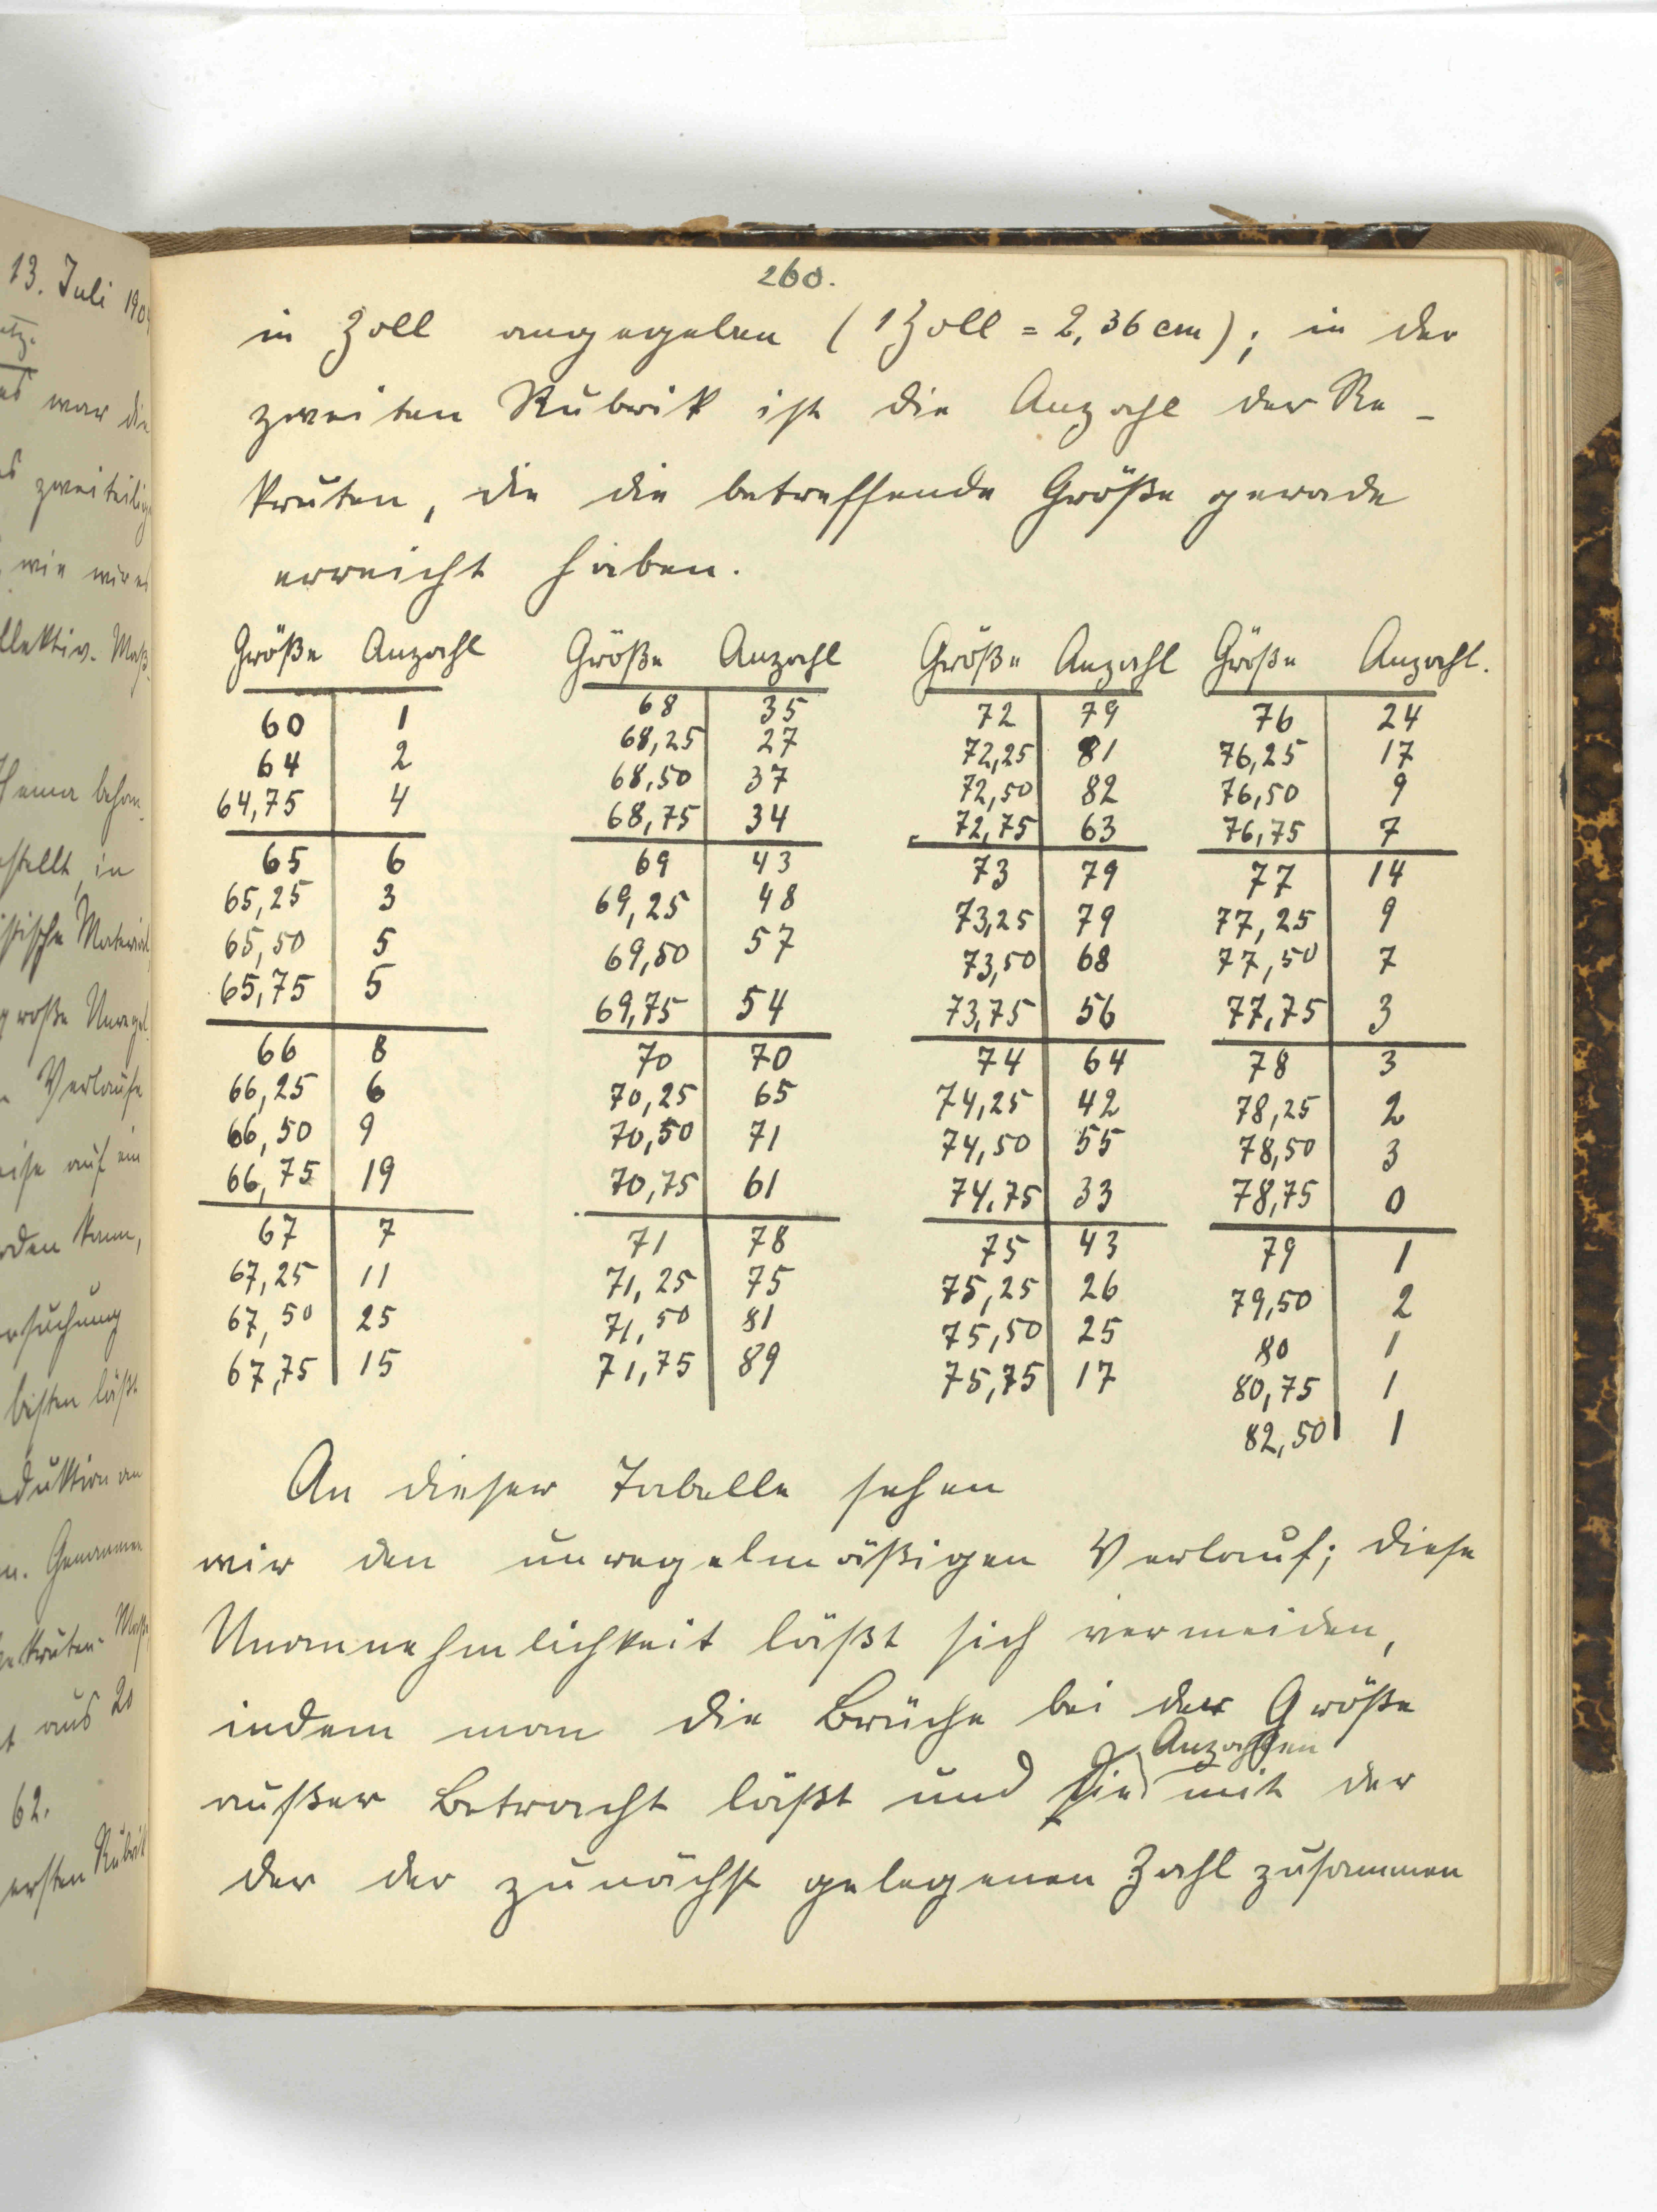 13. Juli 190
war die
zweiteilig
wie wir es
260.
in Zoll angegeben (1 Zoll = 2,36 cm); in der
zweiten Rubrik ist die Anzahl der Re-
kruten, die die betreffende Größe gerade
erreicht haben.
Größe Anzahl Größe Anzahl Größe Anzahl Größe Anzahl.
60 1 68 35 72 79 76 24
64 2 68,25 27 72,25 81 76,25 17
64,75 4 68,50 37 72,50 82 76,50 9
68,75 34 72,75 63 76,75 7
65 6 69 43 73 79 77 14
65,25 3 69,25 48 73,25 79 77,25 9
65,50 5 69,50 57 73,50 68 77,50 7
65,75 5 69,75 54 73,75 56 77,75 3
66 8 70 70 74 64 78 3
66,25 6 70,25 65 74,25 42 78,25 2
66,50 9 70,50 71 74,50 55 78,50 3
66,75 19 70,75 61 74,75 33 78,75 0
67 7 71 78 75 43 79 1
67,25 11 71,25 75 75,25 26 79,50 2
67,50 25 71,50 81 75,50 25 80 1
67,75 15 71,75 89 75,75 17 80,75 1
82,50 1
An dieser Tabelle sehen
wir den unregelmäßigen Verlauf; diese
Unannehmlichkeit läßt sich vermeiden,
indem man die Brüche bei der Größe
Anzahlen
außer Betracht läßt und die mit der
der der zunächst gelegenen Zahl zusammen